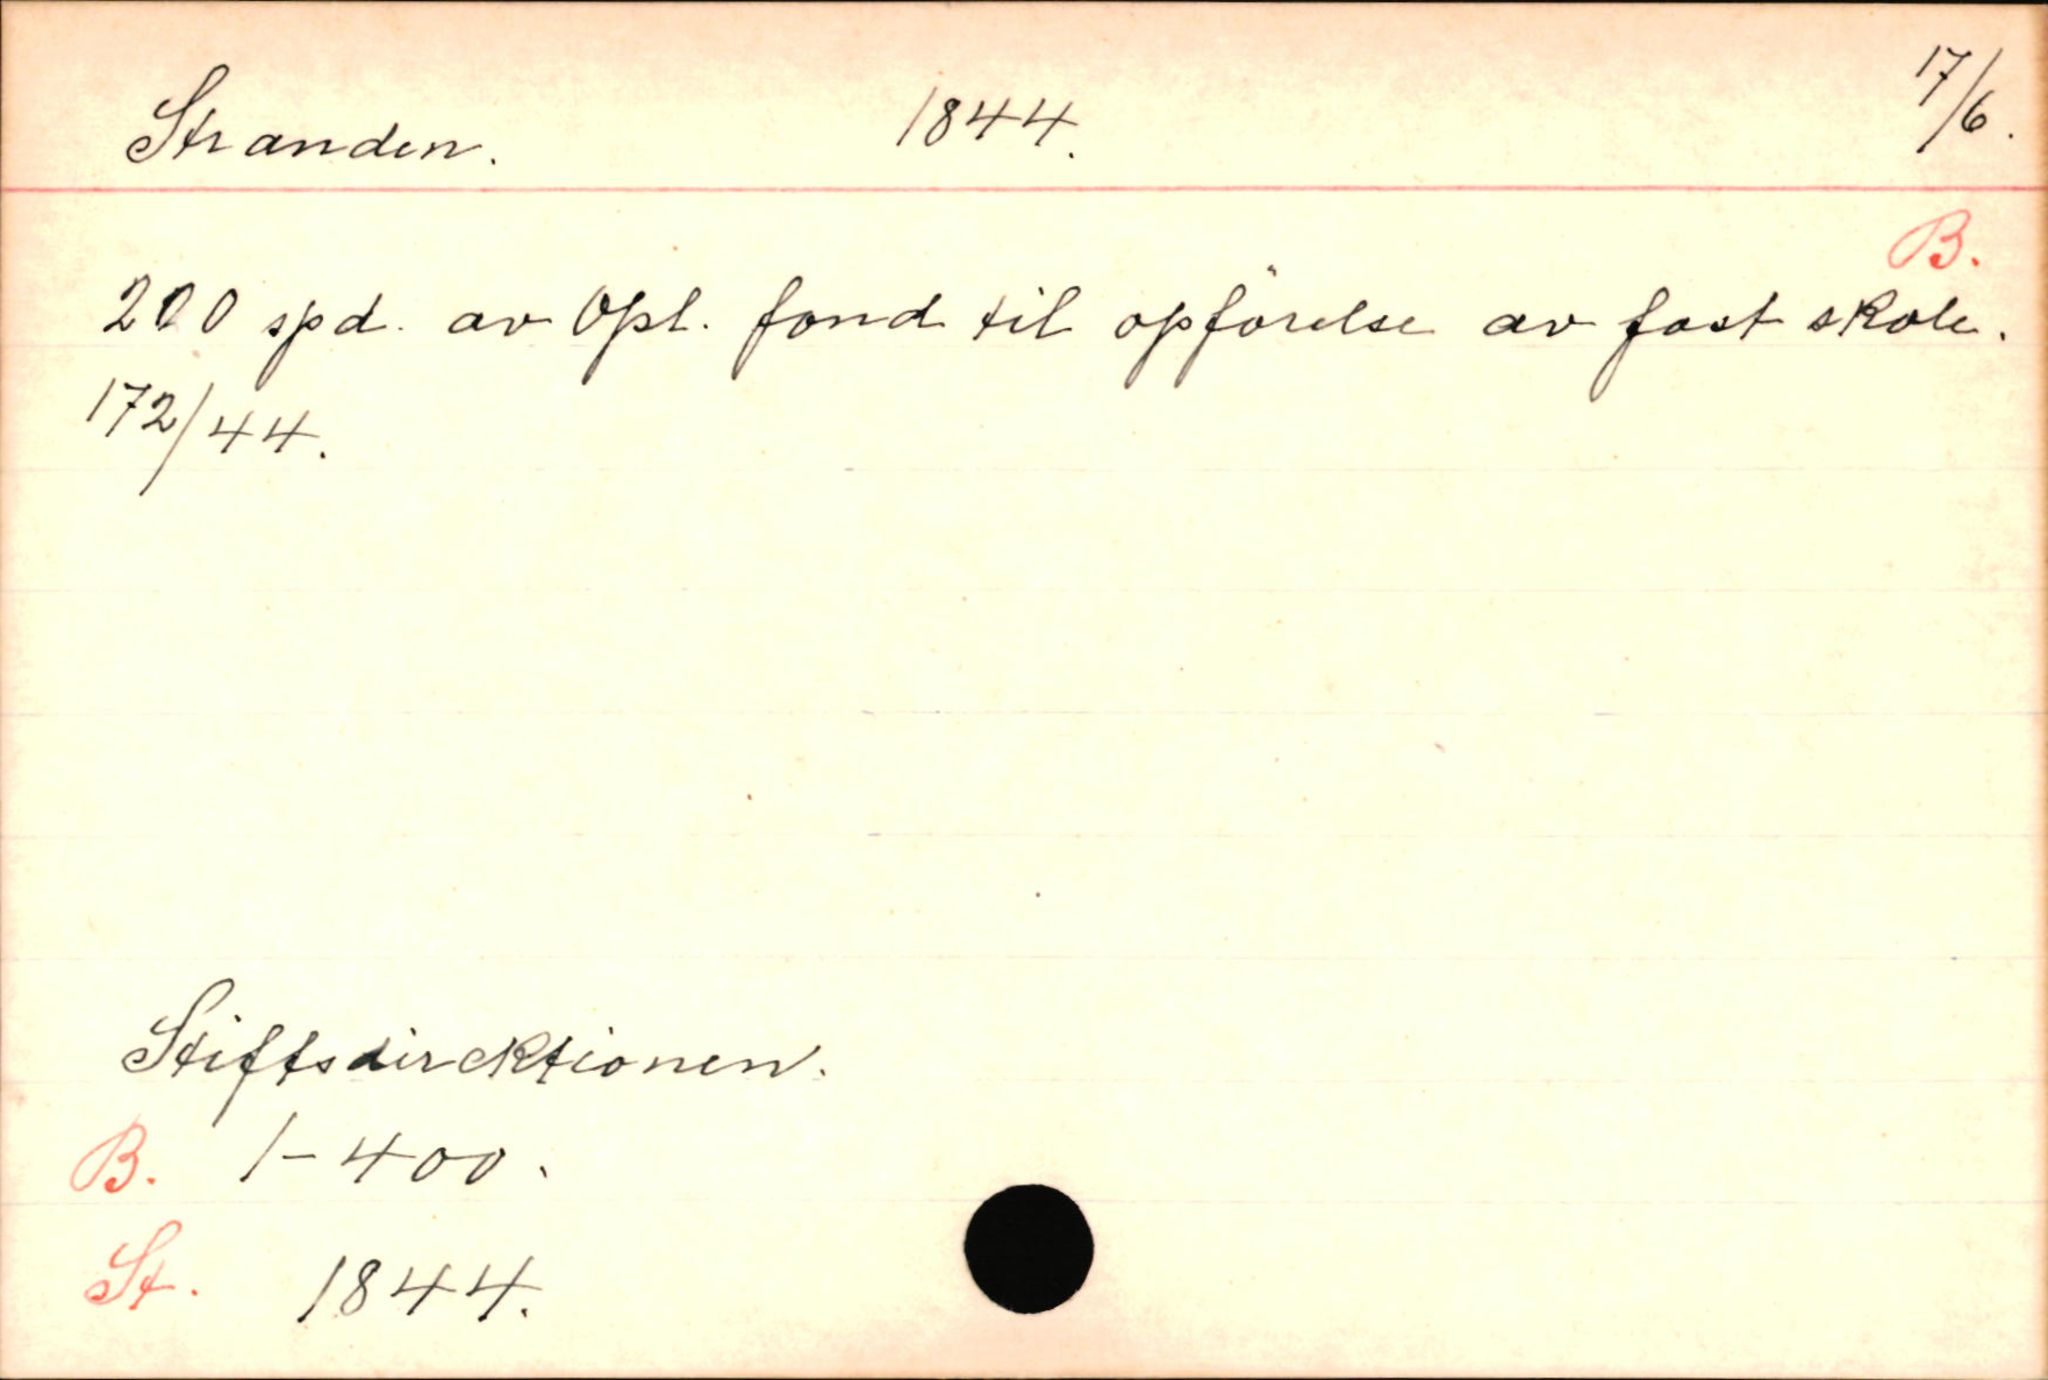 Stranden. 1844. 17/6.
B.
200 spd. av Opl. fond til opförelse av fast skole.
172/44.
Stiftsdirektionen.
B. 1-400.
St. 1844.